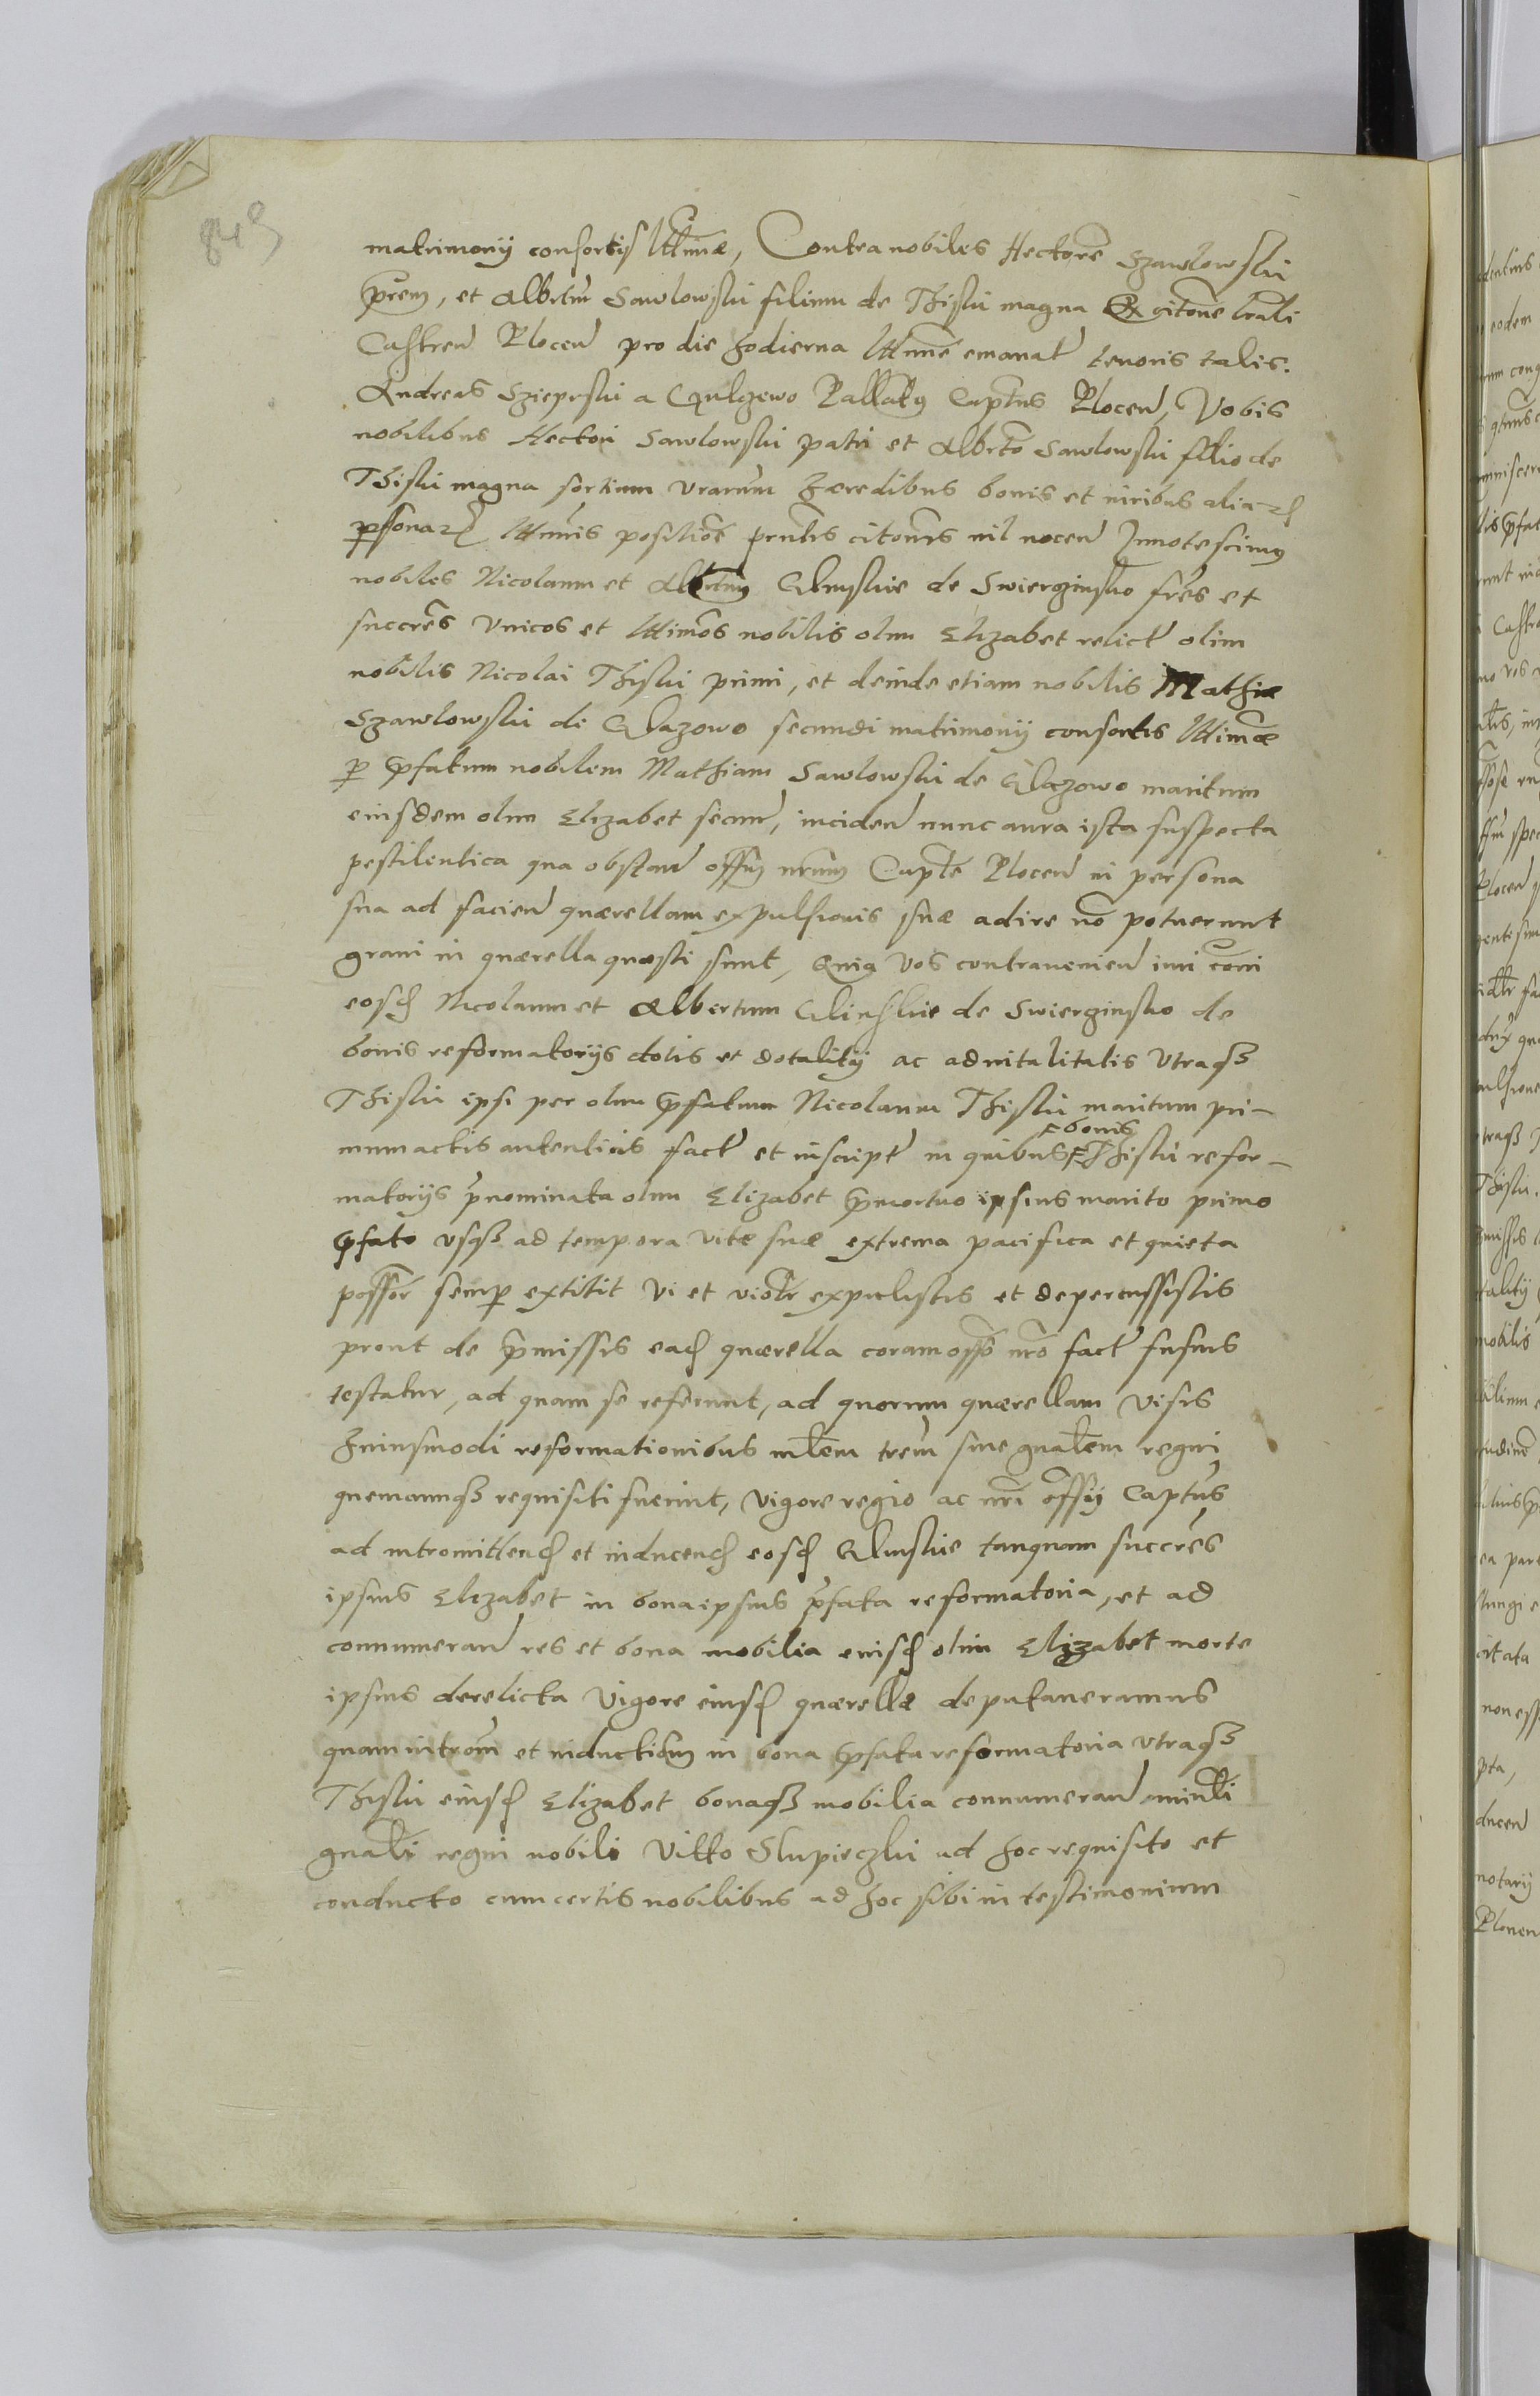 matrimonij consortis lttimæ, Contra nobiles Hectorē Szawlowski
p̄rem, et Albertū Sawlowski filium de Thiski magna Ex citone lrali
Castren Plocen pro die hodierna lttime emanat tenoris talis.
Andreas Szieprski a Gulzewo Pallatʒ Capitns Plocen, Vobis
nobilibus Hectori Sawlowski patri et Albrto Sawlowski filio de
Thiski magna sortium vrarum hæredibus bonis et iuribus aliaꝝ
ꝑsonaꝝ lttimis positiōe prntis citonis nil nocen Innotescimʒ
nobiles Nicolaum et Albrtum Glinskie de Swierginsko fr̄es et
succrēs vnicos et lttimōs nobilis olim Elizabet relict olim
nobilis Nicolai Thiski primi, et deinde etiam nobilis Mathiæ
Szawlowski de Glazowo secundi matrimonij consortis lttimæ
ꝑ p̄fatum nobilem Mathiam Sawlowski de Glazowo maritum
eiusdem olim Elizabet secun, inciden nunc aura ista suspecta
pestilentica qua obstan offm nrum Captē Plocen in persona
sua ad facien quærellam expulsionis suæ adire nō potuerunt
graui in quærella quæsti sunt, Quia vos contrauenien iuri cōi
eosd Nicolaum et Albertum Glinskie de Swierginsko de
bonis reformatorijs dotis et dotalitij ac aduitalitatis vtraqȝ
Thiski ipsi per olim p̄fatum Nicolaum Thiski maritum pri-
mum actis autenticis fact et inscript in quibus bonis Thiski refor-
matorijs p̄nominata olim Elizabet p̄mortuo ipsius marito primo
p̄fato vsqȝ ad tempora vitæ suæ extrema pacifica et quieta
possor semꝑ extitit vi et violtr expulistis et depercussistis
prout de p̄missis ead quærella coram offo nro fact fusius
testatur, ad quam se referunt, ad quorum quærellam visis
huiusmodi reformationibus mlem trem siue gnalem regni
quemcunqȝ requisiti fuerint, vigore regio ac nri offij Captus
ad intromittend et inducend eosd Glinskie tanquam succrēs
ipsius Elizabet in bona ipsius p̄fata reformatoria, et ad
connumeran res et bona mobilia eiusd olim Elizabet morte
ipsius derelicta vigore eiusd quærellæ deputaueramus
quam introm et inductiom in bona p̄fata reformatoria vtraqȝ
Thiski eiusd Elizabet bonaqȝ mobilia connumeran minrli
gnali regni nobili Vitto Slupieczki ad hoc requisito et
conducto cum certis nobilibus ad hoc sibi in testimonium